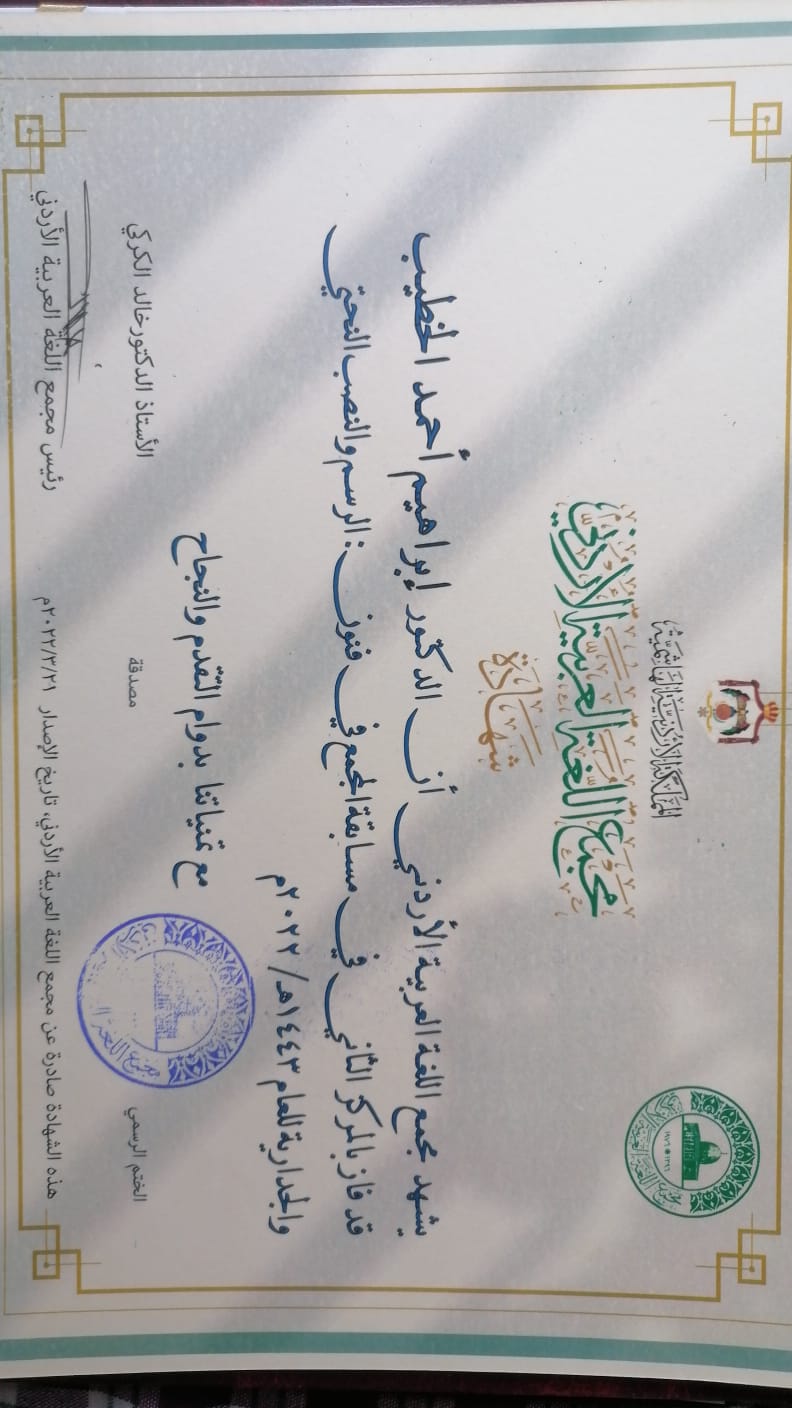 المملكة الأردنية الهاشمية
مجمع اللغة العربية الأردني
شهادة
يشهد مجمع اللغة العربية الأردني أن الدكتور إبراهيم أحمد الخطيب
قد فاز بالمركز الثاني في مسابقة المجمع في فنون: الرسم والنصب النحتي
والجدارية للعام ١٤٤٣هـ/ ٢٠٢٢م
مع تمنياتنا بدوام التقدم والنجاح
الختم الرسمي
مصدقة
الأستاذ الدكتور خالد الكركي
رئيس مجمع اللغة العربية الأردني
هذه الشهادة صادرة عن مجمع اللغة العربية الأردني، تاريخ الإصدار ٢٠٢٢/٣/٢١م
١٣٩٦ ١٩٧٦
مجمع اللغة